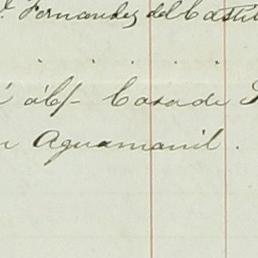 Fernandez del Castil
á lbf- Casa de
Aguamanil.